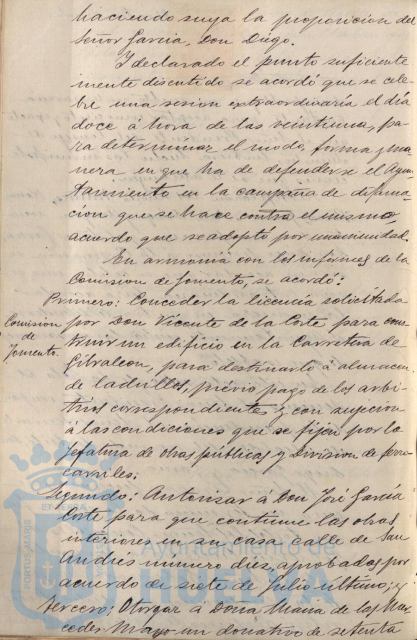 haciendo suya la proposición del
Señor García, Don Diego.
Y declarado el punto suficiente
mente discutido se acordó que se cele-
bre una sesion extraordinaria el día
doce á hora de las veintiuna, pa-
ra determinar el modo, forma y ma-
nera en que ha de defenderse el Ayun-
tamiento en la campaña de difama-
cion que se hace contra el mismo,
acuerdo que se adoptó por unanimidad.
En armonía con los informes de la
Comision de Fomento, se acordó:
Primero: Conceder la licencia solicitada
Comision
de
Fomento.
por Don Vicente de la Corte para cons-
truir un edificio en la Carretera de
Gibraleon, para destinarlo á almacen
de ladrillos, prévio pago de los arbi-
trios correspondiente y con sujecion
á las condiciones que se fijen por la
Jefatura de obras públicas y Division de ferro-
carriles;
Segundo: Autorizar á Don José García
Corte para que continue las obras
interiores en su casa calle de San
Andrés número diez, aprobadas por
acuerdo de siete de Julio último; y
tercero; Otorgar á Doña Maria de las Mer-
cedes Mayo un donativo de setenta
Ayuntamiento de
HUELVA
PORTUS MARIS